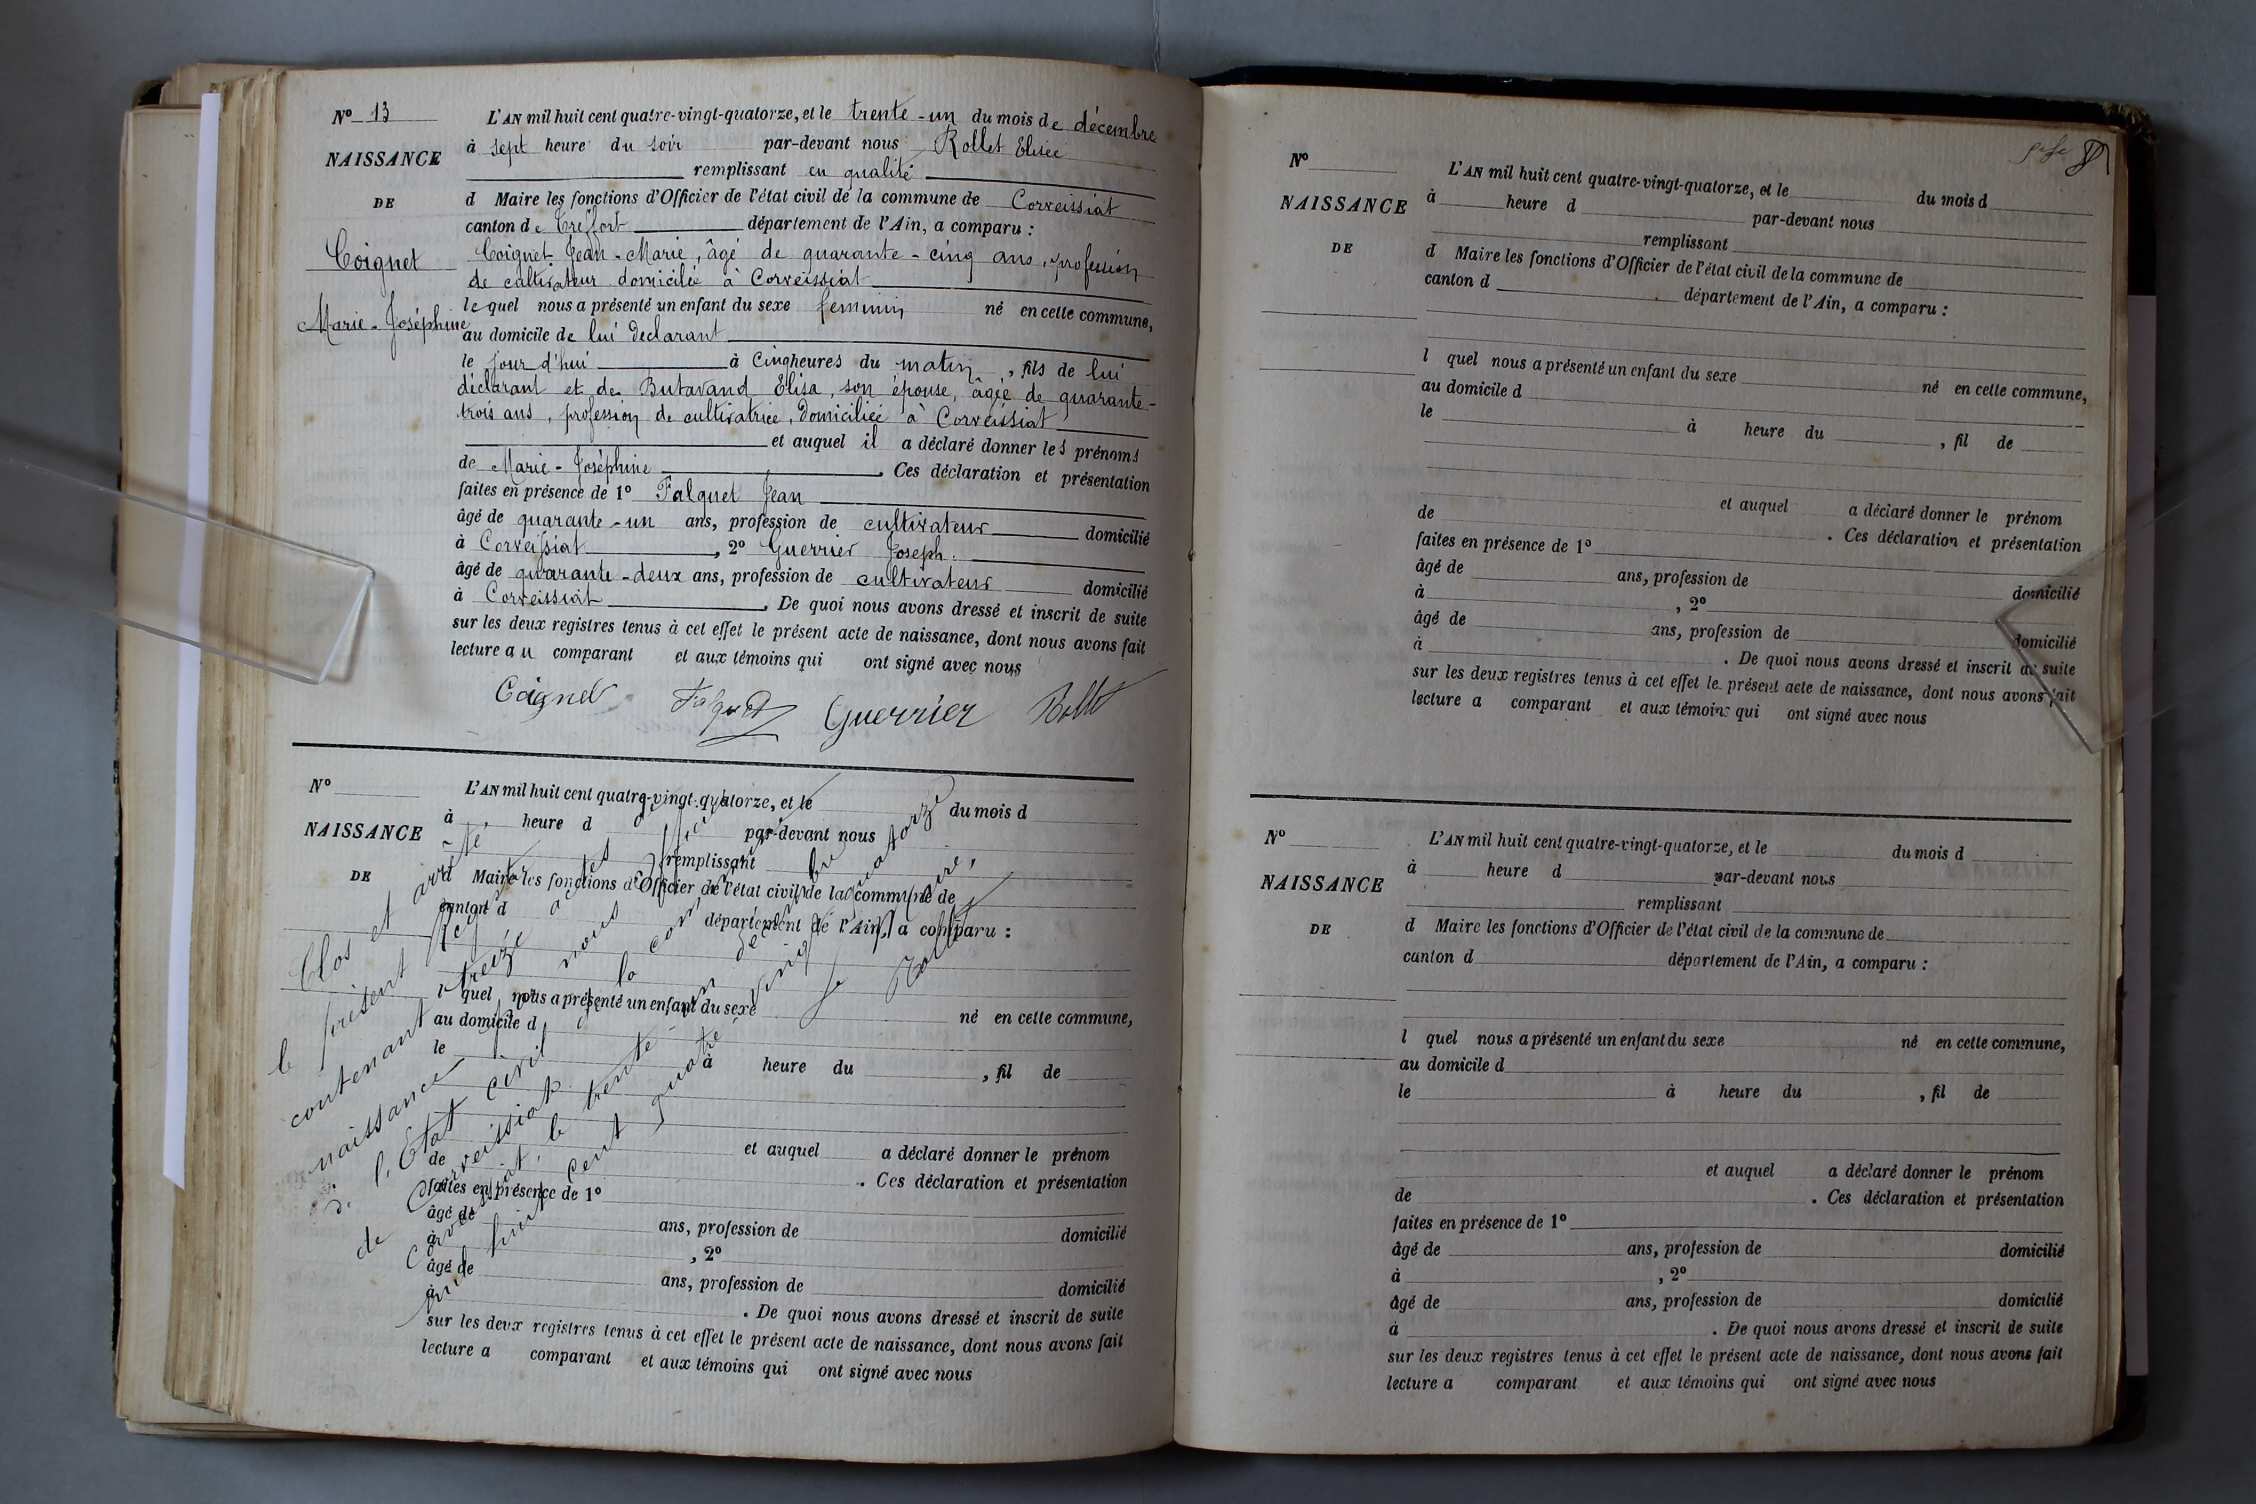 N° 13
NAISSANCE
DE
Coignet
Marie-Joséphine
L'AN mil huit cent quatre-vingt-quatorze, et le trente-un du mois de décembre
à sept heure du soir par-devant nous Rollet Elisée
remplissant en qualité
d Maire les fonctions d'Officier de l'état civil de la commune de Corveissiat
canton de Treffort département de l'Ain, a comparu :
Coignet Jean-Marie, âgé de quarante-cinq ans, profession
de cultivateur domicilié à Corveissiat
lequel nous a présenté un enfant du sexe feminin né en cette commune,
au domicile de lui déclarant
le jour d'hui à cinq heures du matin, fils de lui
déclarant et de Butavand Elisa, son épouse, âgée de quarante-
trois ans, profession de cultivatrice, domiciliée à Corveissiat
et auquel il a déclaré donner les prénoms
de Marie-Joséphine . Ces déclaration et présentation
faites en présence de 1° Falquet Jean
âgé de quarante-un ans, profession de cultivateur domicilié
à Corveissiat, 2° Guerrier Joseph.
âgé de quarante-deux ans, profession de cultivateur domicilié
à Corveissiat . De quoi nous avons dressé et inscrit de suite
sur les deux registres tenus à cet effet le présent acte de naissance, dont nous avons fait
lecture au comparant et aux témoins qui ont signé avec nous
Coignet Falquet Guerrier Rollet
N°
NAISSANCE
DE
L'AN mil huit cent quatre-vingt-quatorze, et le du mois d
à heure d par-devant nous
remplissant
d Maire les fonctions d'Officier de l'état civil de la commune de
canton d département de l'Ain, a comparu :
l quel nous a présenté un enfant du sexe né en cette commune,
au domicile d
le à heure du , fil de
et auquel a déclaré donner le prénom
de . Ces déclaration et présentation
faites en présence de 1°
âgé de ans, profession de domicilié
à , 2°
âgé de ans, profession de domicilié
à . De quoi nous avons dressé et inscrit de suite
sur les deux registres tenus à cet effet le présent acte de naissance, dont nous avons fait
lecture a comparant et aux témoins qui ont signé avec nous
Clos et arrêté
le présent Registre
contenant treize actes de
naissance par nous officier
de l'Etat civil de la commune
de Corveissiat.
Corveissiat, le trente un décembre
mil huit cent quatre vingt quatorze
Le Maire,
Rollet
N°
NAISSANCE
DE
L'AN mil huit cent quatre-vingt-quatorze, et le du mois d
à heure d par-devant nous
remplissant
d Maire les fonctions d'Officier de l'état civil de la commune de
canton d département de l'Ain, a comparu :
l quel nous a présenté un enfant du sexe né en cette commune,
au domicile d
le à heure du , fil de
et auquel a déclaré donner le prénom
de . Ces déclaration et présentation
faites en présence de 1°
âgé de ans, profession de domicilié
à , 2°
âgé de ans, profession de domicilié
à . De quoi nous avons dressé et inscrit de suite
sur les deux registres tenus à cet effet le présent acte de naissance, dont nous avons fait
lecture a comparant et aux témoins qui ont signé avec nous
N°
NAISSANCE
DE
L'AN mil huit cent quatre-vingt-quatorze, et le du mois d
à heure d par-devant nous
remplissant
d Maire les fonctions d'Officier de l'état civil de la commune de
canton d département de l'Ain, a comparu :
l quel nous a présenté un enfant du sexe né en cette commune,
au domicile d
le à heure du , fil de
et auquel a déclaré donner le prénom
de . Ces déclaration et présentation
faites en présence de 1°
âgé de ans, profession de domicilié
à , 2°
âgé de ans, profession de domicilié
à . De quoi nous avons dressé et inscrit de suite
sur les deux registres tenus à cet effet le présent acte de naissance, dont nous avons fait
lecture a comparant et aux témoins qui ont signé avec nous